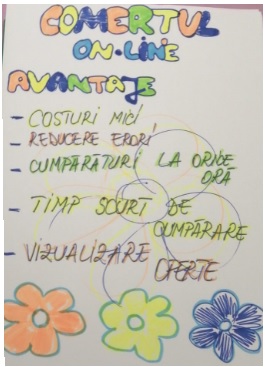 COMERTUL
ON-LINE
AVANTAJE
- COSTURI MICI
- REDUCERE ERORI
- CUMPĂRĂTURI LA ORICE
ORĂ
- TIMP SCURT DE
CUMPĂRARE
- VIZUALIZARE
OFERTE